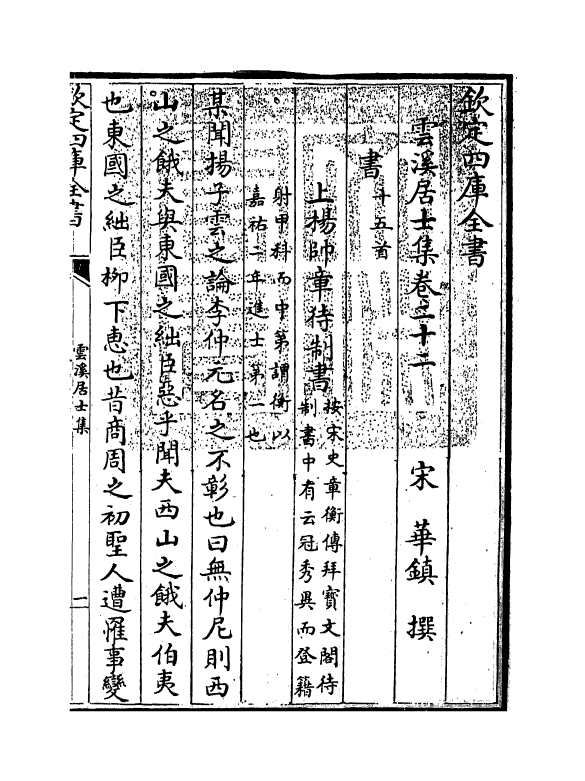 欽定四庫全書
雲溪居士集卷二十二
宋 華鎮 撰
書 十五首
上揚帥章待制書 按宋史章衡傳拜寳文閣待
制書中有云冠秀異而登籍
射甲科而中第謂衡以
嘉祐二年進士第一也
某聞揚子雲之論李仲元名之不彰也曰無仲尼則西
山之餓夫與東國之絀臣惡乎聞夫西山之餓夫伯夷
也東國之絀臣柳下惠也昔商周之初聖人遭罹事變
欽定四庫全書
雲溪居士集
二